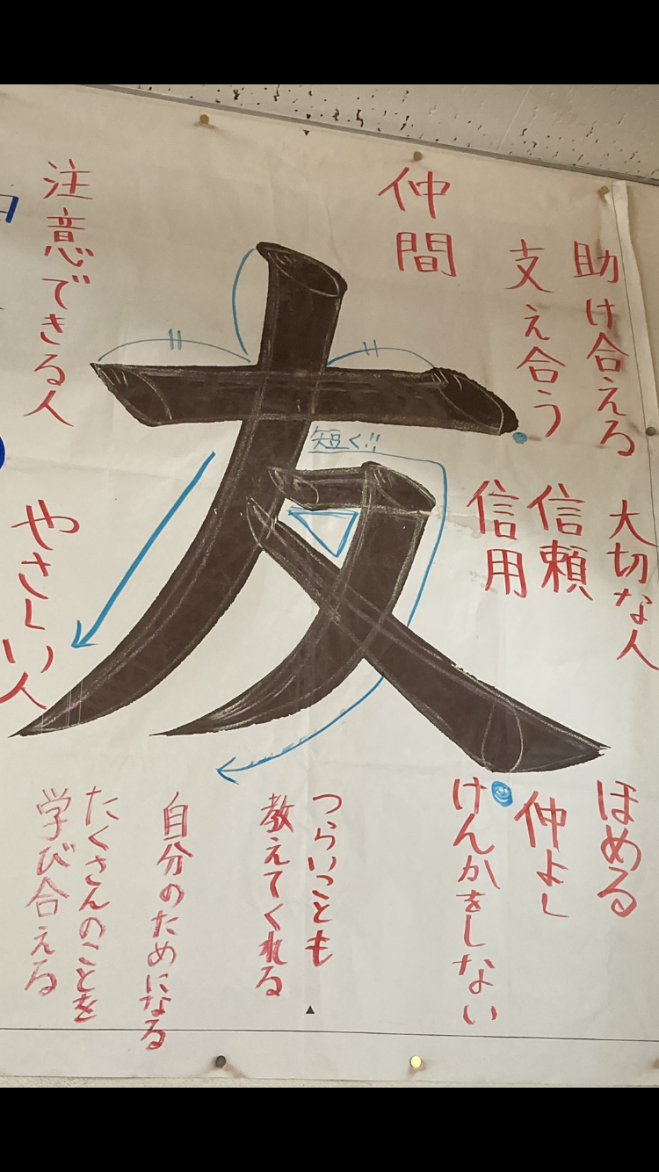 助け合える
支え合う
仲間
注意できる人
友
短く!!
大切な人
信頼
信用
やさしい人
ほめる
仲よし
けんかをしない
つらいことも
教えてくれる
自分のためになる
たくさんのことを
学び合える